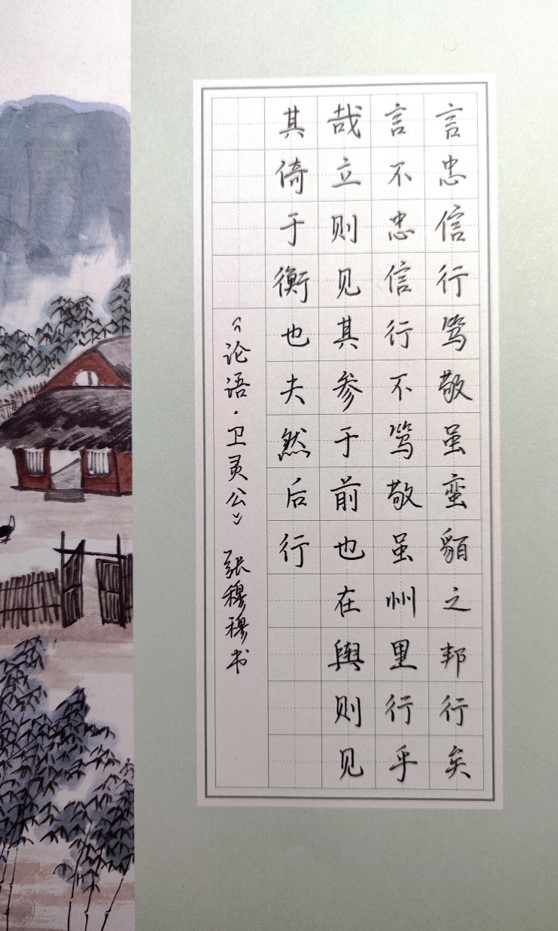 言忠信行笃敬虽蛮貊之邦行矣
言不忠信行不笃敬虽州里行乎
哉立则见其参于前也在舆则见
其倚于衡也夫然后行
《论语·卫灵公》 张穆穆书